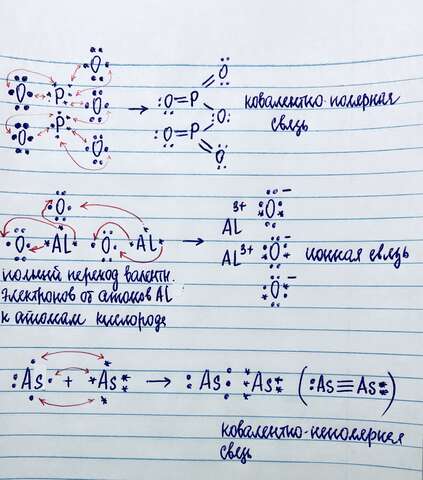 O
O P O → :O=P O
O P O :O=P O ковалентно-полярная
O связь
O
O AL O AL → AL 3+ O −
AL 3+ O − ионная связь
O −
полный переход валентн.
электронов от атомов AL
к атомам кислорода
:As· + *As → :As As (:As≡As:)
ковалентно-неполярная
связь